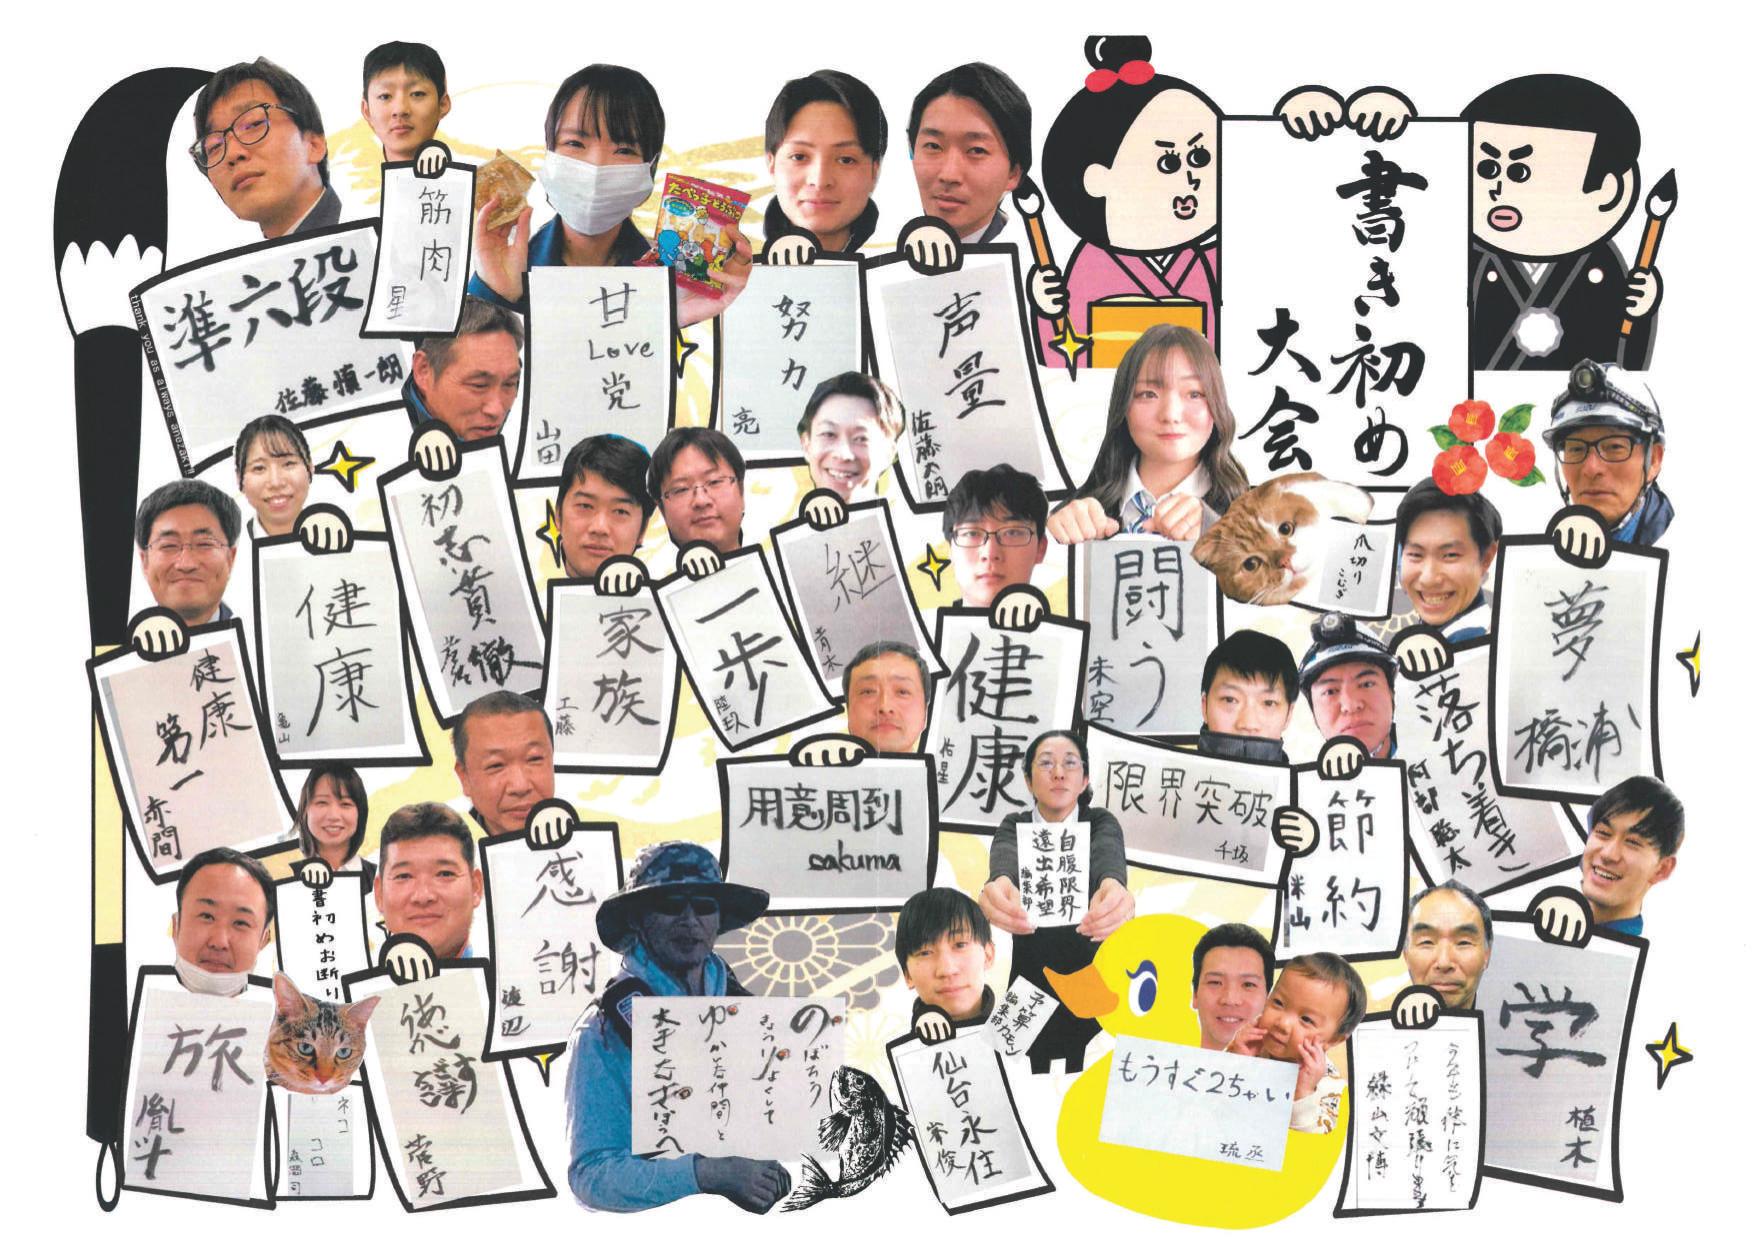 書き初め
大会
準六段
佐藤慎一朗
thank you as always anezaki!!
筋肉
星
たべっ子どうぶつ
甘Love党
山田
努力
亮
声量
佐藤太朗
闘う
未空
爪切り
こむぎ
夢
橋浦
健康第一
赤間
健康
亀山
初志貫徹
家族
工藤
一歩
陸玖
継
青木
健康
佑星
限界突破
千坂
節約
米山
落ち着き
阿部聡太
用意周到
sakuma
自腹限界
遠出希望
編集部
予算
編集部
感謝
渡辺
書初めお断り
ネコ
コロ
旅
胤斗
菅野
のぼろう
きょうりょくして
ゆかいな仲間と
大きなたいようへ
仙台永住
常俊
もうすぐ2ちゃい
琉丞
学
植木